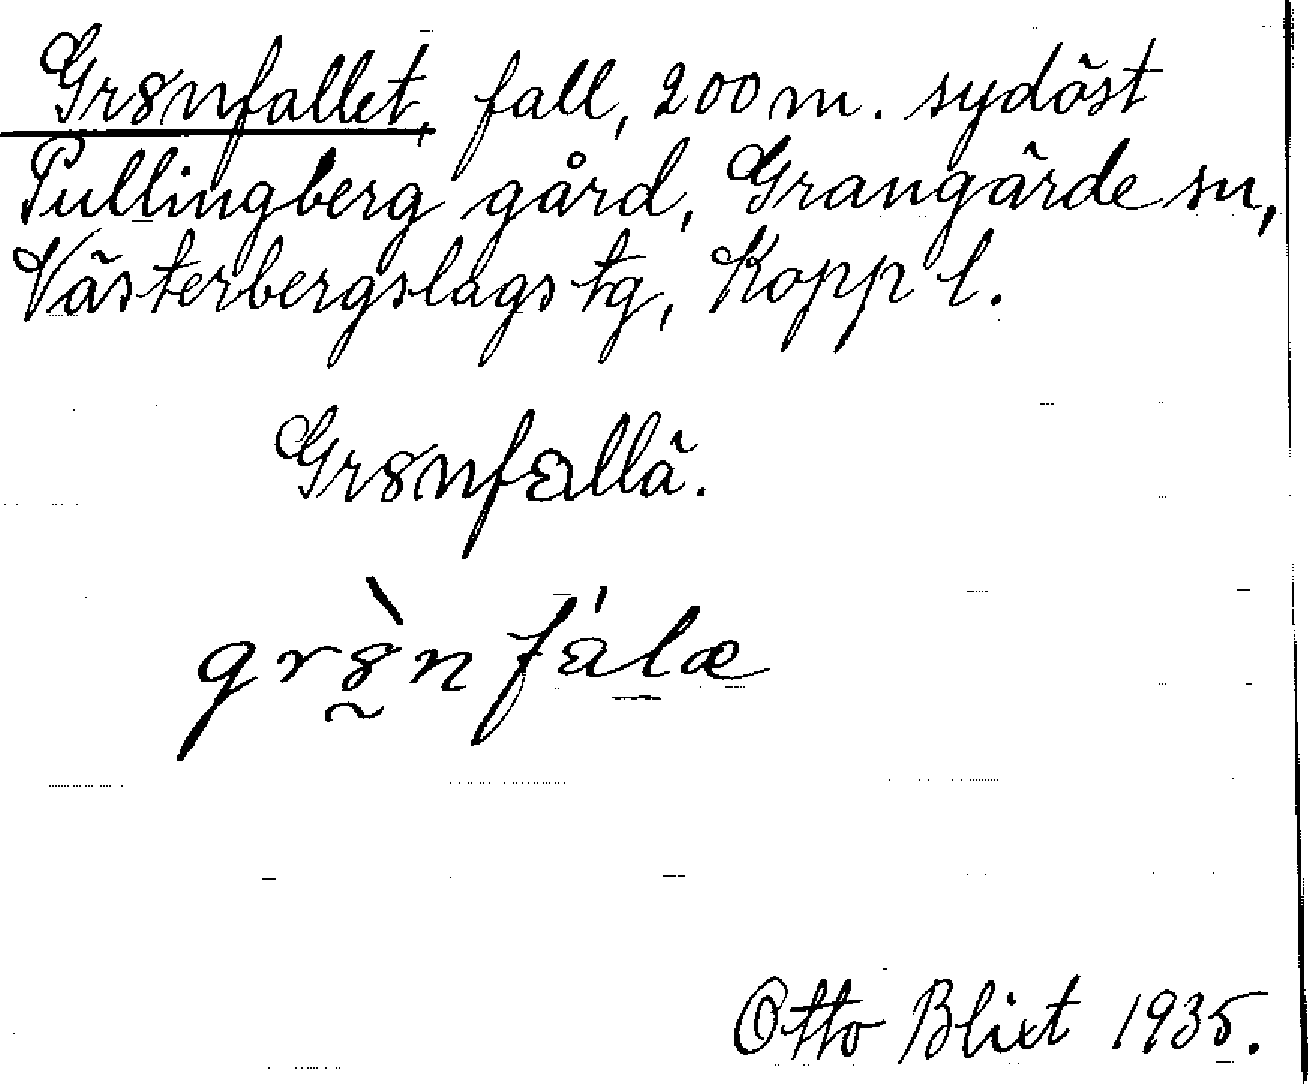 Gr8nfallet, fall, 200 m. sydöst
Pullingberg gård, Grangärde sn,
Västerbergslags tg, Kopp l.
Gr8nfallä.
gr8̰̀nfálæ
Otto Blixt 1935.